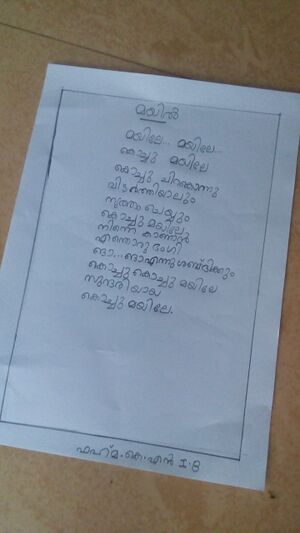 മയിൽ
മയിലേ... മയിലേ...
കൊച്ചു മയിലേ
കൊച്ചു ചിറകൊന്നു
വിടർത്തിയാലും
നൃത്തം ചെയ്യും
കൊച്ചു മയിലേ
നിന്നെ കാണാൻ
എന്തൊരു ഭംഗി
ങാ...ങാ എന്നു ശബ്ദിക്കും
കൊച്ചു കൊച്ചു മയിലേ
സുന്ദരിയായ
കൊച്ചു മയിലേ.
ഫഹ്‌മ.കെ.എൻ I.B